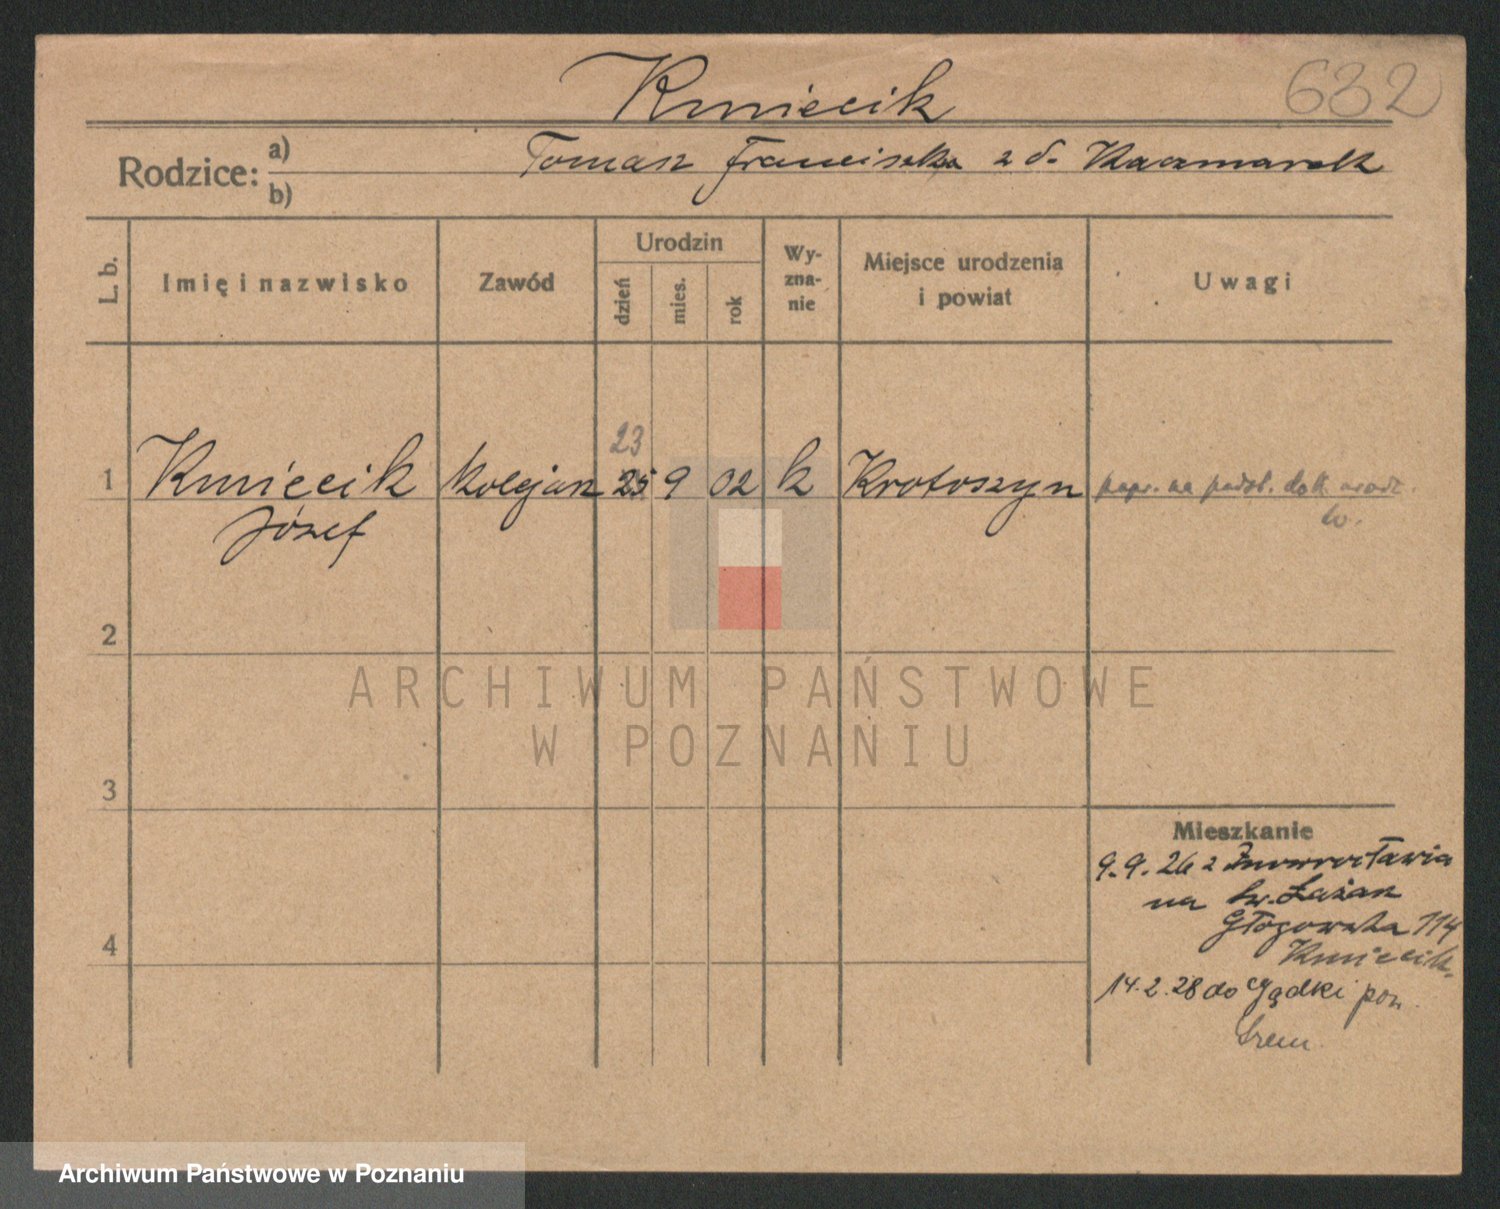 Kmiecik
632
Rodzice: a) Tomasz Franciszka z d. Kaczmarek
b)
L. b.
Imię i nazwisko
Zawód
Urodzin
dzień
mies.
rok
Wy-
zna-
nie
Miejsce urodzenia
i powiat
Uwagi
23
1 Kmiecik kolejarz 25 9 02 k Krotoszyn popr. na podst. dok. urodz.
Józef
2
ARCHIWUM PAŃSTWOWE
W POZNANIU
3
Mieszkanie
9.9.26 z Inowrocławia
na Św. Łazarz
Głogowska 114
4
Kmiecik
14.2.28 do Gądki pow.
Śrem
Archiwum Państwowe w Poznaniu